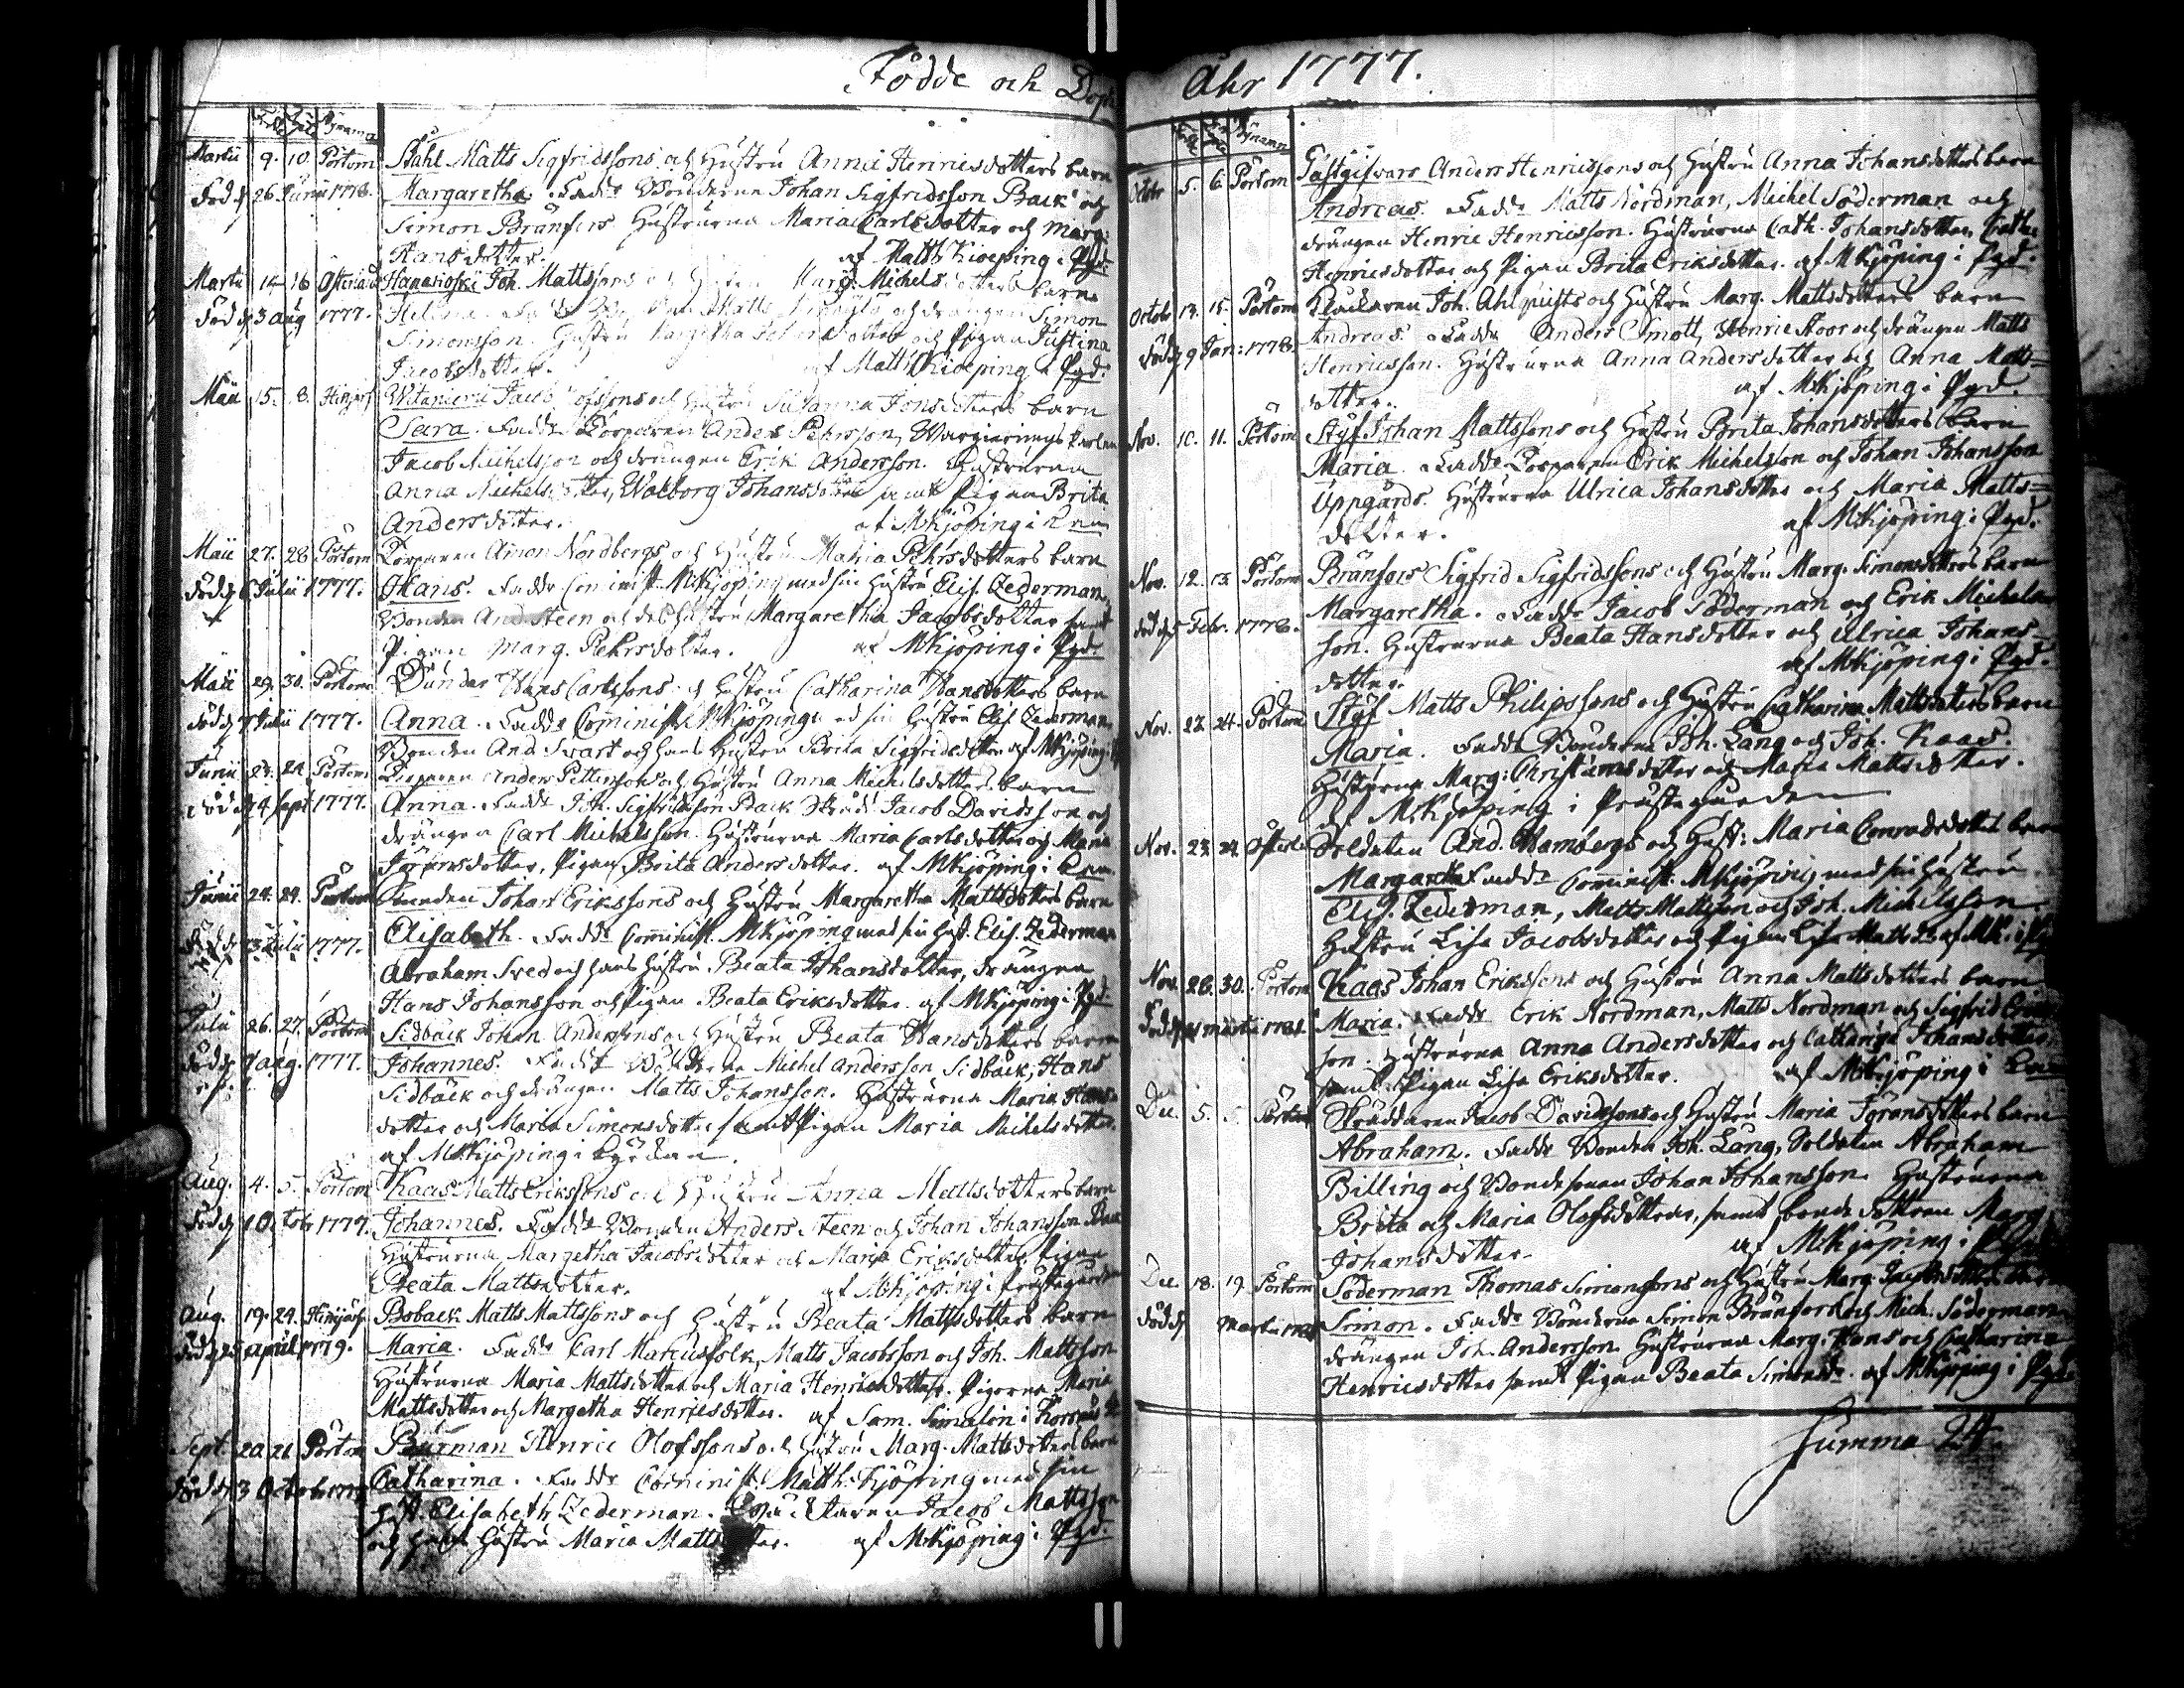 Födde och Döpt
Martii 9. 10. Pörtom Ståhl Matts Sigfridssons och Hustru Anna Henricsdotters barn
Död d 26 Junii 1778. Margaretha. Fadd: Bönderna Johan Sigfridsson Back och
Simon Bränfors Hustrurna Maria Carlsdotter och Marg:
Hansdotter. af Matth. Kioeping i Pgd.
Martii 14 16 Joh. Mattssons och Marg. Michelsdotters barn
Död d 3 aug 1777. Helena. och drängen Simon
Simonsson. Hustru Margetha dotter och Pigan Justina
Jacobsdotter. af Matth. Kioeping i Pgd.
Maii 15. 8. Jacob och Hustru Susanna Jonsdotters barn
Sara. Fadd: Torparen Anders Pehrsson,
Jacob Michelsson och drängen Erik Andersson. Hustrurna
Anna Michelsdotter, Walborg Johansdotter samt Pigan Brita
Andersdotter. af MKjöping i
Maii 27. 28 Pörtom Torparen Nordbergs och Hustru Maria Pehrsdotters barn
Död d 6 Julii 1777. Hans. Fadd: Cominist. MKjöping med sin Hustru Elis. Zederman,
Bonden And Steen och dess Hustru Margaretha Jacobsdotter samt
Pigan Marg. Pehrsdotter. af MKjöping i Pgd.
Maii 29. 30. Pörtom Hans Carlssons och Hustru Catharina Hansdotters barn
Död d 7 Julii 1777. Anna. Fadd: Cominist. MKjöping med sin Hustru Elis. Zederman
Bonden And. Svart och hans Hustru Brita Sigfridsdotter af MKjöping i
Junii Pörtom Torparen Anders Pettersons och Hustru Anna Michelsdotters barn
Död d 4 Sept 1777. Anna. Fadd: Joh. Sigfridsson Back Skrädd: Jacob Davidsson och
drängen Carl Michelsson. Hustrurna Maria Carlsdotter och Maria
Jöransdotter, Pigan Brita Andersdotter. af MKjöping i
Junii 24. 24. Pörtom Bonden Johan Erikssons och Hustru Margaretha Mattsdotters barn
Död d 13 Julii 1777. Elisabeth. Fadd: Cominist. MKjöping med sin Hust. Elis. Zederman
Abraham Sved och hans Hustru Beata Johansdotter, drängen
Hans Johansson och Pigan Beata Eriksdotter. af MKjöping i Pgd.
Julii 26. 27. Pörtom Sidback Johan Anderssons och Hustru Beata Hansdotters barn
Död d 7 aug. 1777. Johannes. Fadd: Bönderna Michel Andersson Sidback, Hans
Sidback och drängen Matts Johansson. Hustrurna Maria Hans-
dotter och Maria Simonsdotter samt Pigan Maria Michelsdotter.
af MKjöping i Kyrkan.
Aug. 4. 5. Pörtom Kaas Matts Erikssons och Hustru Anna Mattsdotters barn
Död d 1 Octobr 1777. Johannes. Fadd: Bonden Anders Steen och Johan Johansson Back
Hustrurna Margetha Jacobsdotter och Maria Eriksdotter, Pigan
Beata Mattsdotter. af MKjöping i Prästegården
Aug. 19. 24. Himjärf Boback Matts Mattssons och Hustru Beata Mattsdotters barn
Död d 25 April 1779. Maria. Fadd: Carl Marcusfolk, Matts Jacobsson och Joh. Mattsson
Hustrurna Maria Mattsdotter och Maria Henricsdotter. Pigorna Maria
Mattsdotter och Margetha Henricsdotter. af Sam. Simalin i
Sept. 20 21 Pörtom Burman Henric Olofssons och Hustru Marg. Mattsdotters barn
Död d 3 Octobr Catharina. Fadd: Cominist. Matth. Kjöping med sin
Elisabeth Zederman. Jacob Mattsson
och Hustru Maria Mattsdotter. af MKjöping i Pgd.
Åhr 1777.
Octobr 5. 6 Pörtom Gästgifvars Anders Henricssons och Hustru Anna Johansdotters barn
Andreas. Fadd: Matts Nordman, Michel Söderman och
drängen Henric Henricsson. Hustrurna Cath. Johansdotter, Cath:
Henricsdotter och Pigan Brita Eriksdotter. af MKjöping i Pgd.
Octob. 13. 15. Pörtom Klockaren Joh. Ahlquists och Hustru Marg. Mattsdotters barn
Död d 9 Jan: 1778. Andreas. Fadd: Anders Smott, Henric Stoor och drängen Matts
Henricsson. Hustrurna Anna Andersdotter och Anna Matts-
dotter. af MKjöping i Pgd.
Nov. 10. 11. Pörtom Styf Johan Mattssons och Hustru Brita Johansdotters barn
Maria. Fadd: Torparen Erik Michelsson och Johan Johansson
Uppgårds. Hustrurna Ulrica Johansdotter och Maria Matts-
dotter. af MKjöping i Pgd.
Nov. 12. 13. Pörtom Bränfors Sigfrid Sigfridssons och Hustru Marg. Simonsdotters barn
Död d Febr. 1778. Margaretha. Fadd: Jacob Söderman och Erik Michels-
son. Hustrurna Beata Hansdotter och Ulrica Johans-
dotter. af MKjöping i Pgd.
Nov. 22. 24. Pörtom Styf Matts Philipssons och Hustru Catharina Mattsdotters barn
Maria. Fadd: Bönderna Joh. Lång och Joh. Kaas.
Hustrurna Marg: Christiansdotter och Maria Mattsdotter.
af MKjöping i Prästegården
Nov. 23. 24. Soldaten And. Hambergs och Hust: Maria Conradsdotters barn
Margaretha. Fadd: Cominist. MKjöping med sin Hustru
Elis. Zederman, Matts Mattsson och Joh. Michelsson
Hustru Lisa Jacobsdotter och Pigan Lisa Matts D. af MK. i
Nov. 28. 30. Pörtom Kaas Johan Erikssons och Hustru Anna Mattsdotters barn
Död d Martii 1781. Maria. Fadd: Erik Nordman, Matts Nordman och Sigfrid
son. Hustrurna Anna Andersdotter och Catharina Johansdotter
samt Pigan Lisa Eriksdotter. af MKjöping i
Dec. 5. 5. Pörtom Skräddaren Jacob Davidssons och Hustru Maria Jöransdotters barn
Abraham. Fadd: Bonden Joh. Lång, Soldaten Abraham
Billing och Bondesonen Johan Johansson. Hustrurna
Brita och Maria Olofsdöttrar, samt bondedottren Marg.
Johansdotter. af MKjöping i
Dec. 18. 19. Pörtom Söderman Thomas Simonssons och Hustru Marg. Jacobsdotters barn
Död d Martii Simon. Fadd: Bönderna Simon Bränfors och Mich. Söderman
drängen Joh. Andersson. Hustrurna Marg. Hans och Catharina
Henricsdotter samt Pigan Beata Simonsd:r. af MKjöping i Pgd.
Summa 24.